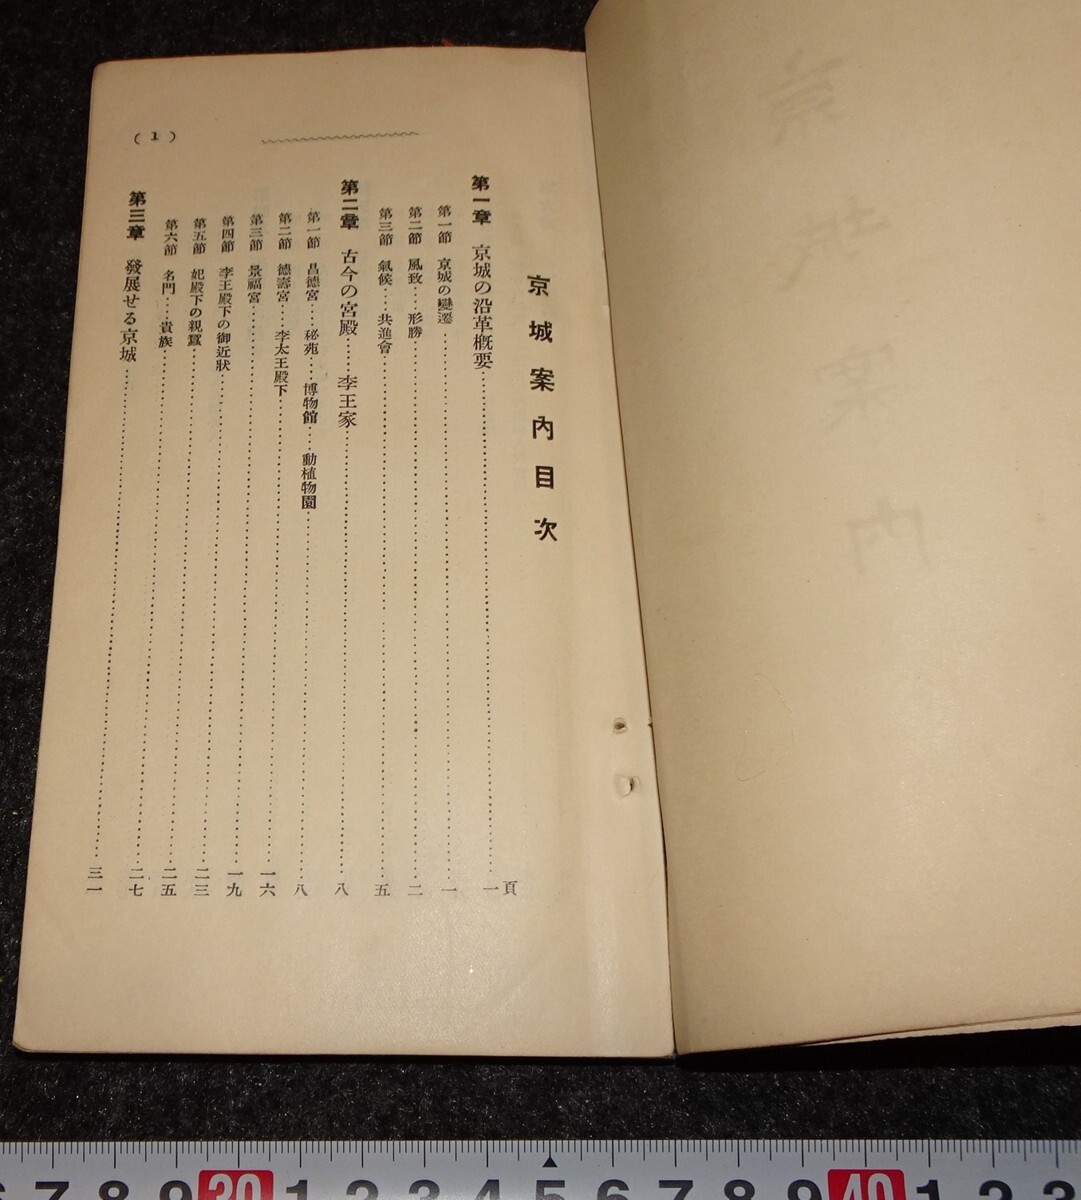 京城案內目次
第一章 京城の沿革概要……一頁
第一節 京城の變遷……一
第二節 風致……形勝……二
第三節 氣候……共進會……五
第二章 古今の宮殿……李王家……八
第一節 昌德宮……秘苑……博物館……動植物園……八
第二節 德壽宮……李太王殿下……一六
第三節 景福宮……一九
第四節 李王殿下の御近狀……二三
第五節 妃殿下の親蠶……二五
第六節 名門……貴族……二七
第三章 發展せる京城……三一
(1)
7 8 9 30 1 2 3 4 5 6 7 8 9 40 1 2 3